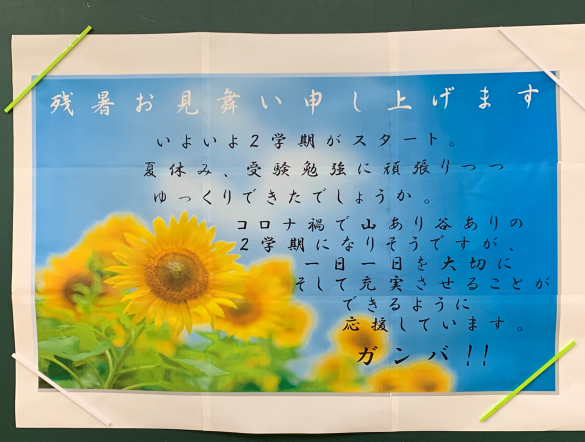 残暑お見舞い申し上げます
いよいよ2学期がスタート。
夏休み、受験勉強に頑張りつつ
ゆっくりできたでしょうか。
コロナ禍で山あり谷ありの
2学期になりそうですが、
一日一日を大切に
そして充実させることが
できるように
応援しています。
ガンバ!!